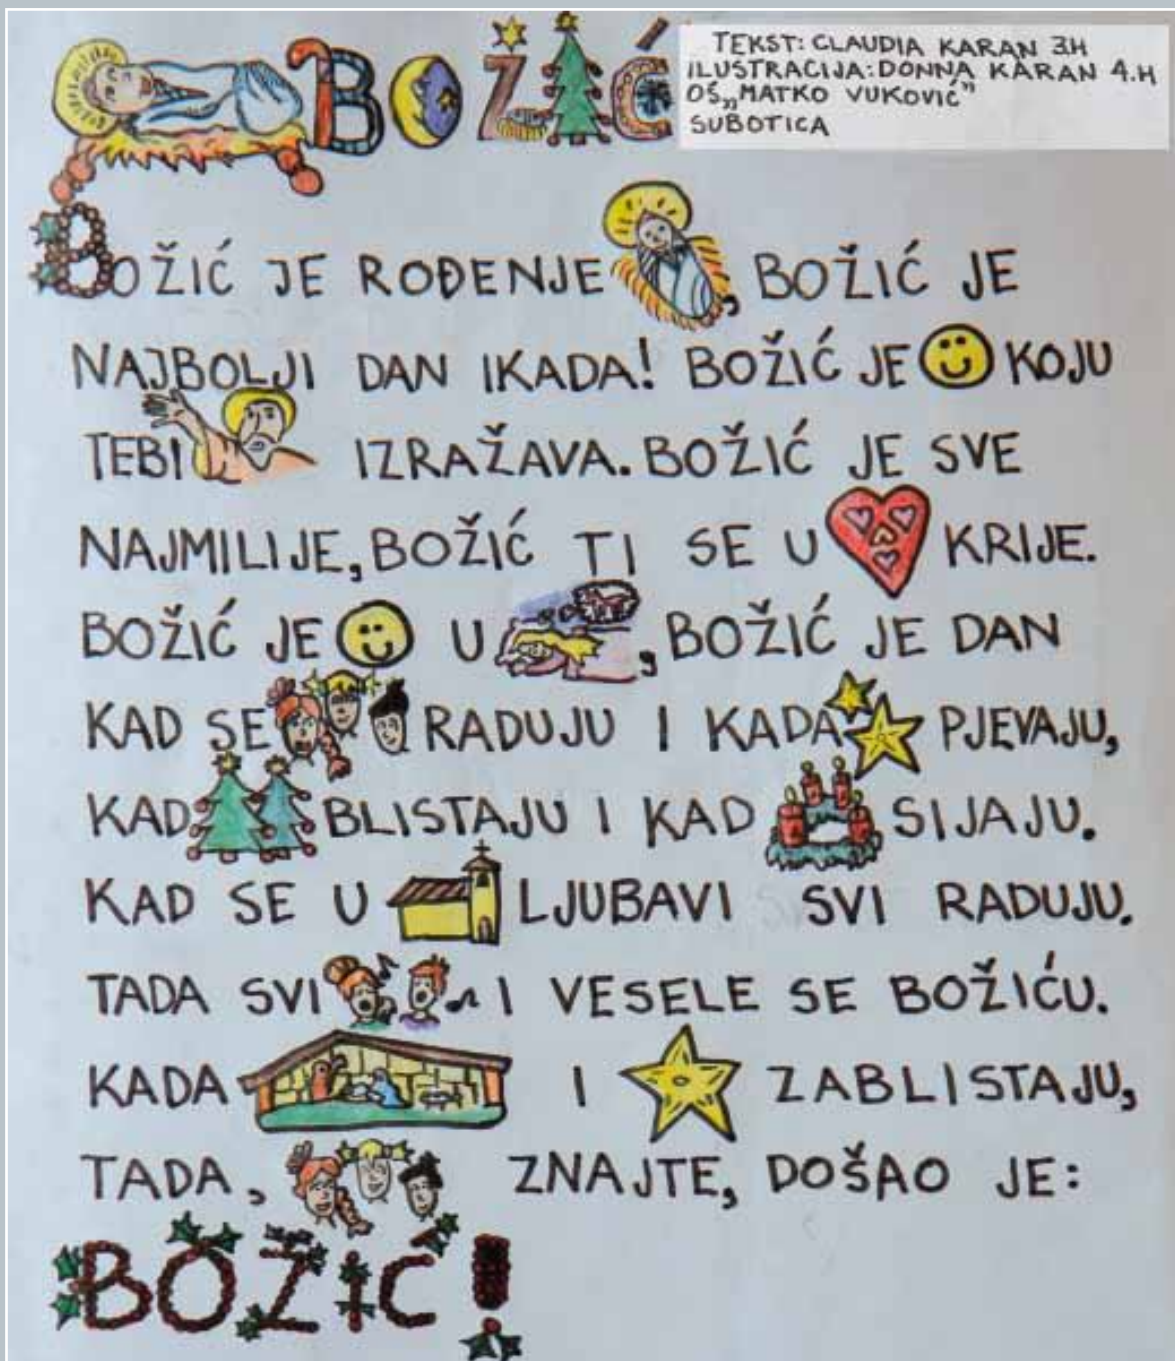 BOŽIĆ
TEKST: CLAUDIA KARAN 3.H
ILUSTRACIJA: DONNA KARAN 4.H
OŠ „MATKO VUKOVIĆ"
SUBOTICA
BOŽIĆ JE ROĐENJE , BOŽIĆ JE
NAJBOLJI DAN IKADA! BOŽIĆ JE KOJU
TEBI IZRAŽAVA. BOŽIĆ JE SVE
NAJMILIJE, BOŽIĆ TI SE U KRIJE.
BOŽIĆ JE U , BOŽIĆ JE DAN
KAD SE RADUJU I KADA PJEVAJU,
KAD BLISTAJU I KAD SIJAJU.
KAD SE U LJUBAVI SVI RADUJU.
TADA SVI I VESELE SE BOŽIĆU.
KADA I ZABLISTAJU,
TADA, ZNAJTE, DOŠAO JE:
BOŽIĆ!